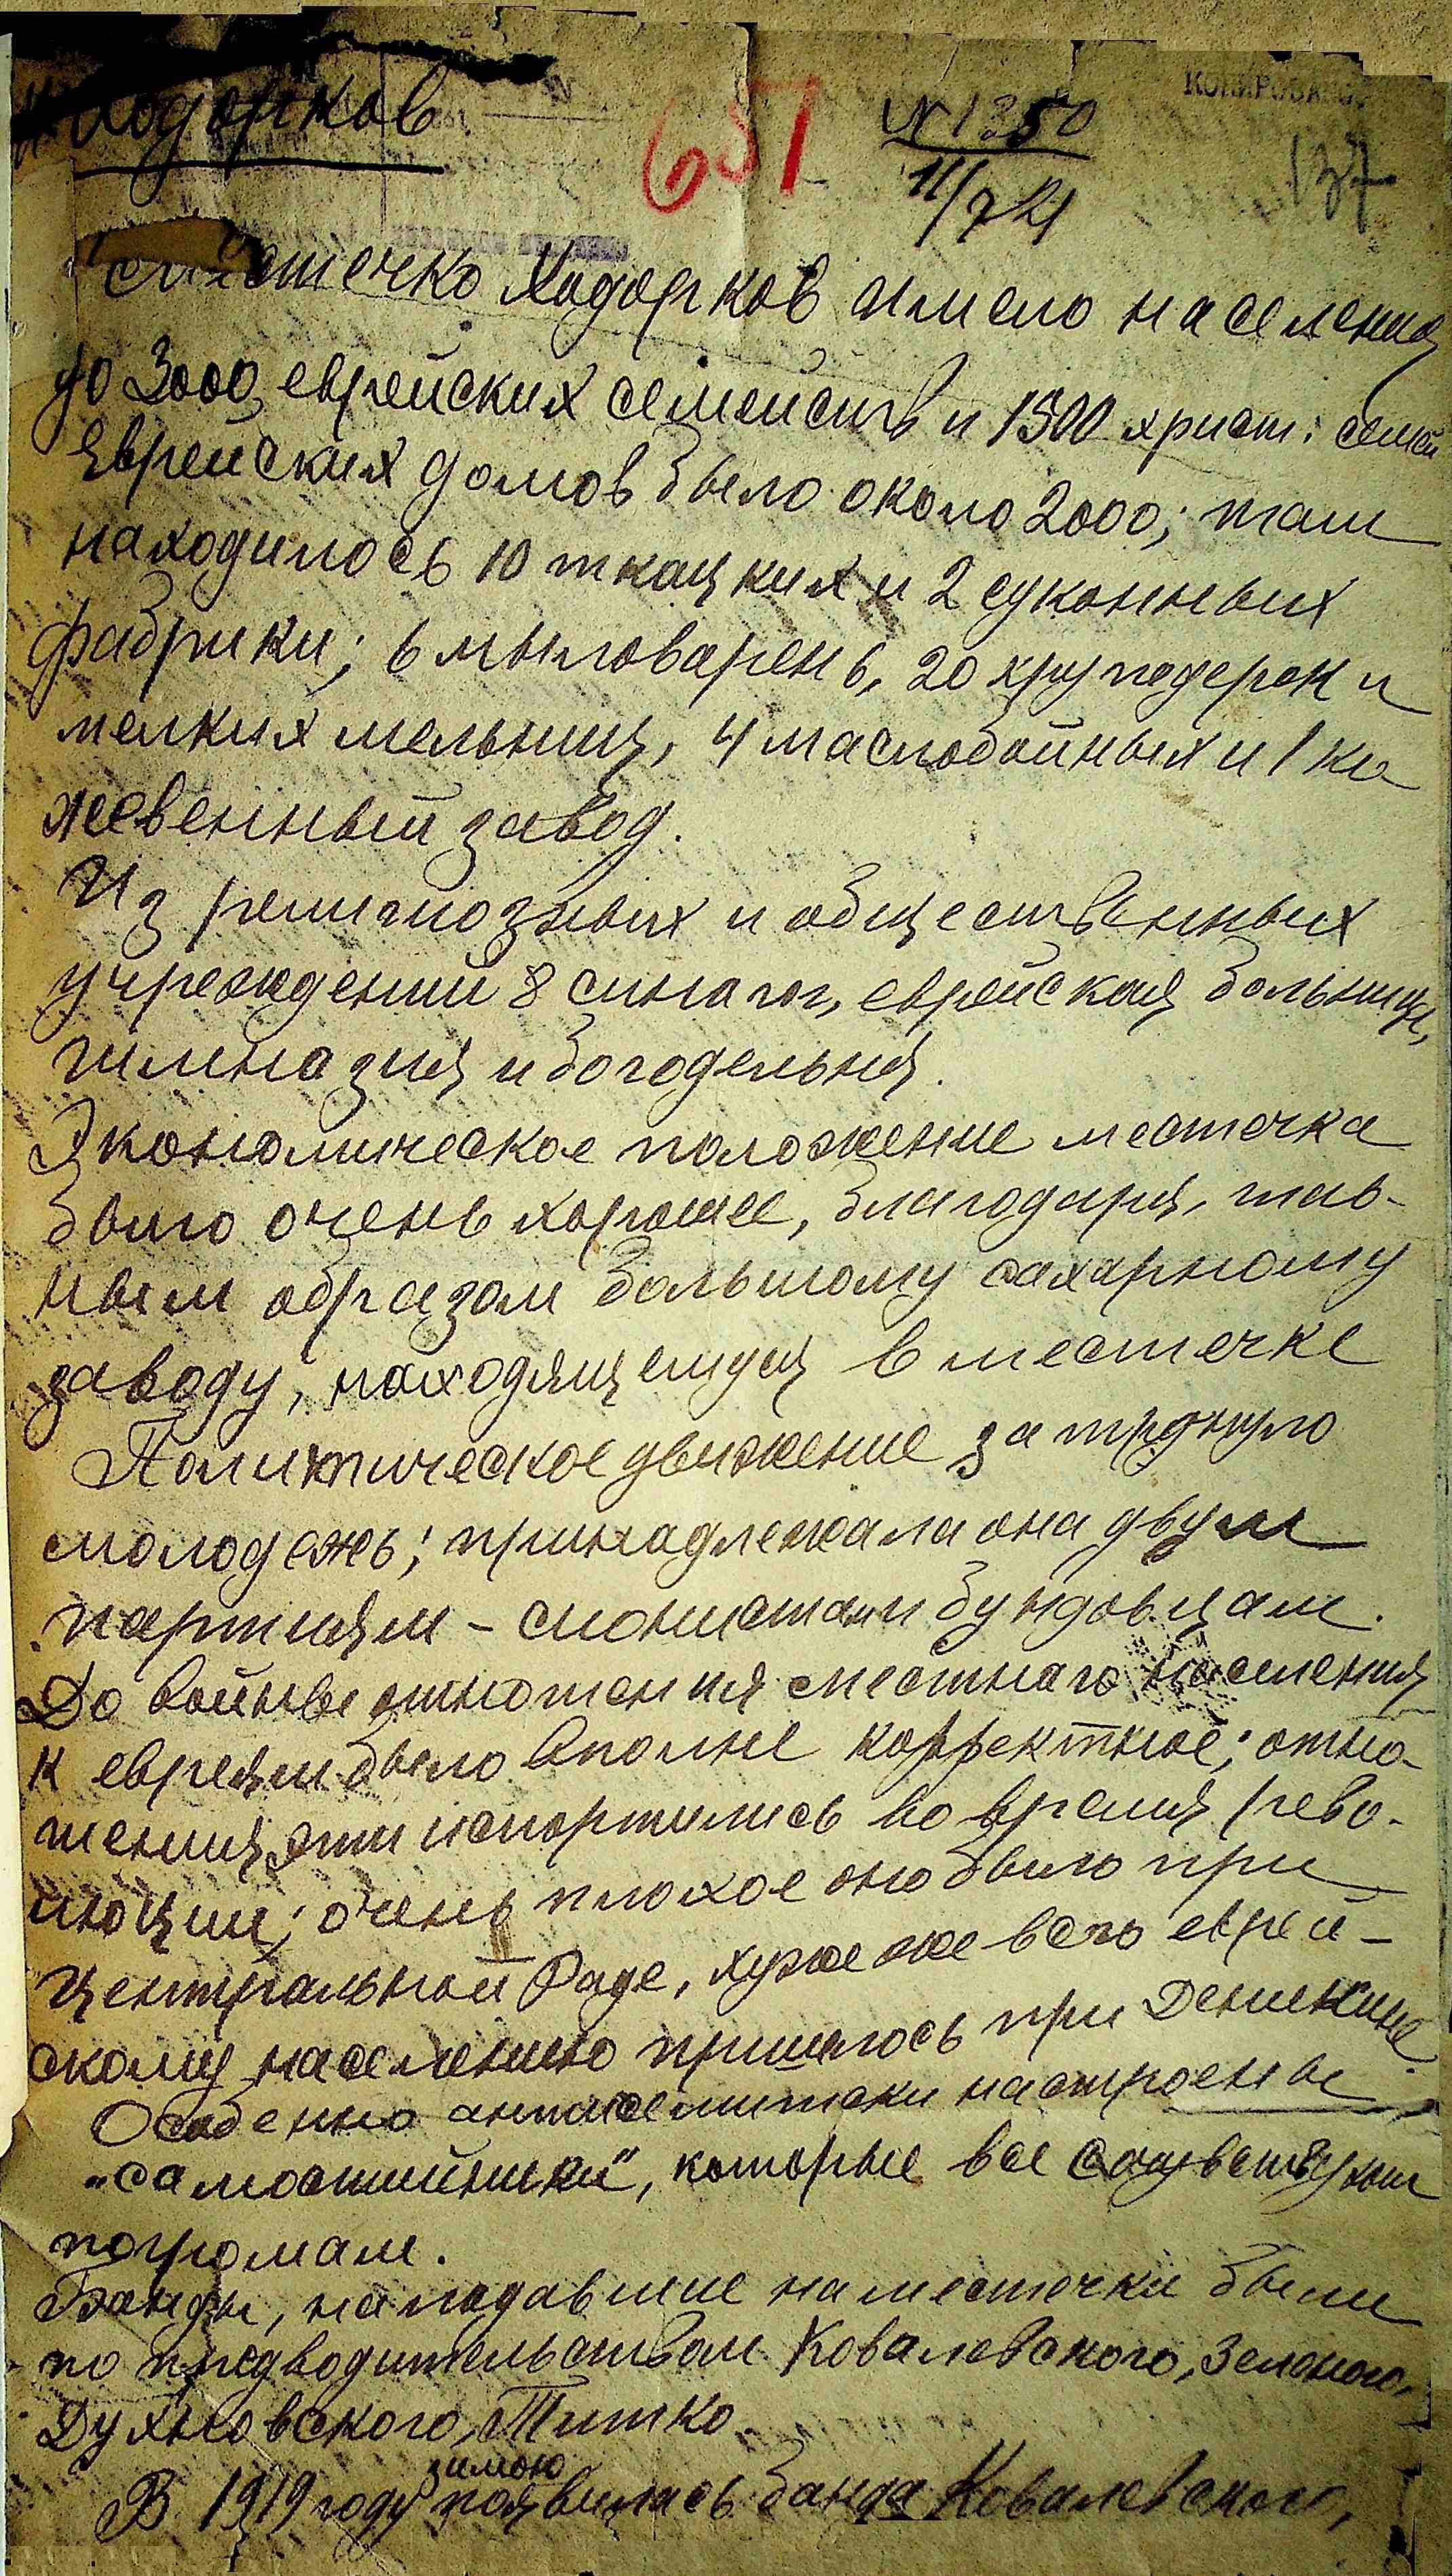 Ходорков
657
N 1350
11/7 21
КОПИРОВАНО
137
Местечко Ходорков имело населения
до 3000 еврейских семейств и 1500 христ. семей
Еврейских домов было около 2000; там
находилось 10 ткацких и 2 суконных
фабрики; 6 мыловарень, 20 круподерок и
мелких мельниц, 4 маслобойных и 1 ко
жевенный завод.
Из религиозных и общественных
учреждений 8 синагог, еврейская больница,
гимназия и богодельня.
Экономическое положение местечка
было очень хорошее, благодаря, глав-
ным образом большому сахарному
заводу, находящемуся в местечке
Политическое движение затронуло
молодежь; принадлежала она двум
партиям – сионистам и бундовцам.
До войны отношения местнаго населения
к евреям было вполне корректное; отно-
шения эти испортились во время рево-
люции; очень плохое оно было при
Центральной Раде, хуже же всего еврей-
скому населению пришлось при Деникине.
Особенно антисемитски настроены
„самостийники", которые все сочувствуют
погромам.
Банды, нападавшие на местечки были
по предводительством Ковалевского, Зеленого,
Духновского, Титко.
зимою
В 1919 году появились банда Ковалевского,